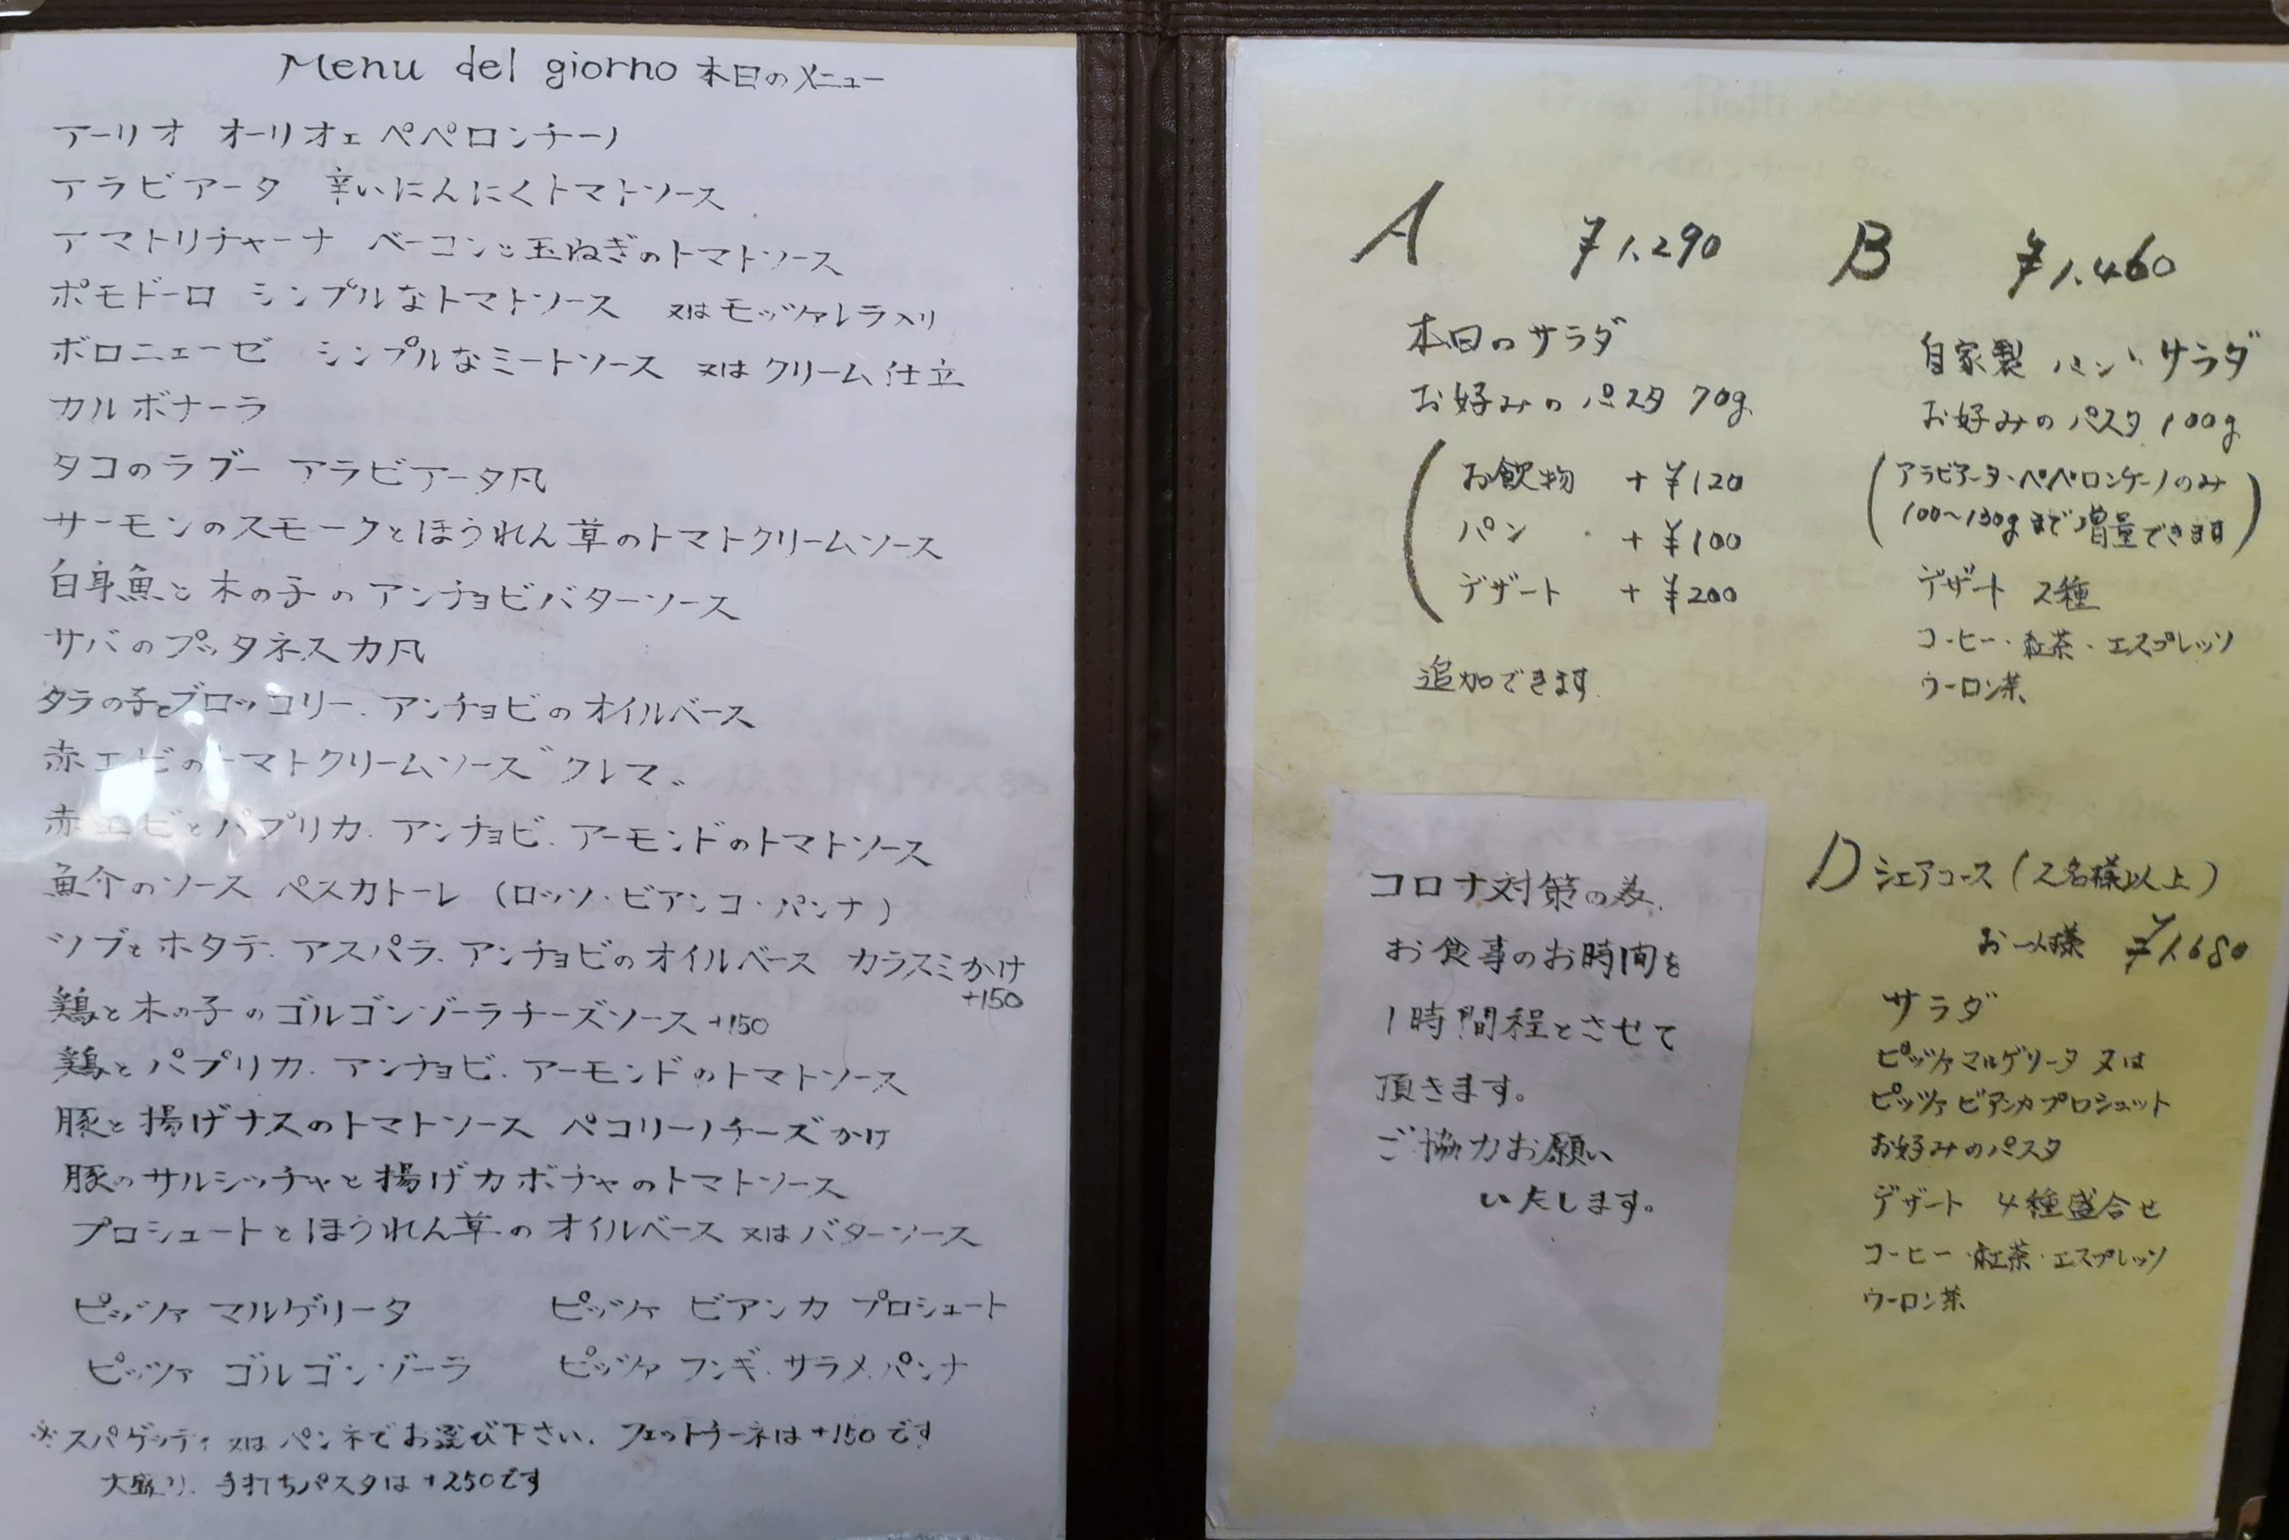 Menu del giorno 本日のメニュー
アーリオ オーリオェ ペペロンチーノ
アラビアータ 辛いにんにくトマトソース
アマトリチャーナ ベーコンと玉ねぎのトマトソース
ポモドーロ シンプルなトマトソース 又はモッツァレラ入り
ボロニェーゼ シンプルなミートソース 又はクリーム仕立
カルボナーラ
タコのラグー アラビアータ風
サーモンのスモークとほうれん草のトマトクリームソース
白身魚と木の子のアンチョビバターソース
サバのプッタネスカ風
タラの子とブロッコリー、アンチョビのオイルベース
赤エビのトマトクリームソース クレマ
赤エビとパプリカ、アンチョビ、アーモンドのトマトソース
魚介のソース ペスカトーレ (ロッソ・ビアンコ・パンナ)
ツブとホタテ、アスパラ、アンチョビのオイルベース カラスミかけ
+150
鶏と木の子のゴルゴンゾーラチーズソース +150
鶏とパプリカ、アンチョビ、アーモンドのトマトソース
豚と揚げナスのトマトソース ペコリーノチーズかけ
豚のサルシッチャと揚げカボチャのトマトソース
プロシュートとほうれん草のオイルベース 又はバターソース
ピッツァ マルゲリータ ピッツァ ビアンカ プロシュート
ピッツァ ゴルゴンゾーラ ピッツァ フンギ、サラメ、パンナ
※スパゲッティ 又は ペンネでお選び下さい、フェットチーネは+150です
大盛り、手打ちパスタは+250です
A ¥1,290
本日のサラダ
お好みのパスタ 70g
お飲物 +¥120
パン +¥100
デザート +¥200
追加できます
B ¥1,460
自家製パン・サラダ
お好みのパスタ 100g
(アラビアータ・ペペロンチーノのみ
100〜130gまで増量できます)
デザート 2種
コーヒー・紅茶・エスプレッソ
ウーロン茶
コロナ対策の為、
お食事のお時間を
1時間程とさせて
頂きます。
ご協力お願い
いたします。
D シェアコース(2名様以上)
お一人様 ¥1,680
サラダ
ピッツァマルゲリータ 又は
ピッツァ ビアンカプロシュット
お好みのパスタ
デザート 4種盛合せ
コーヒー・紅茶・エスプレッソ
ウーロン茶